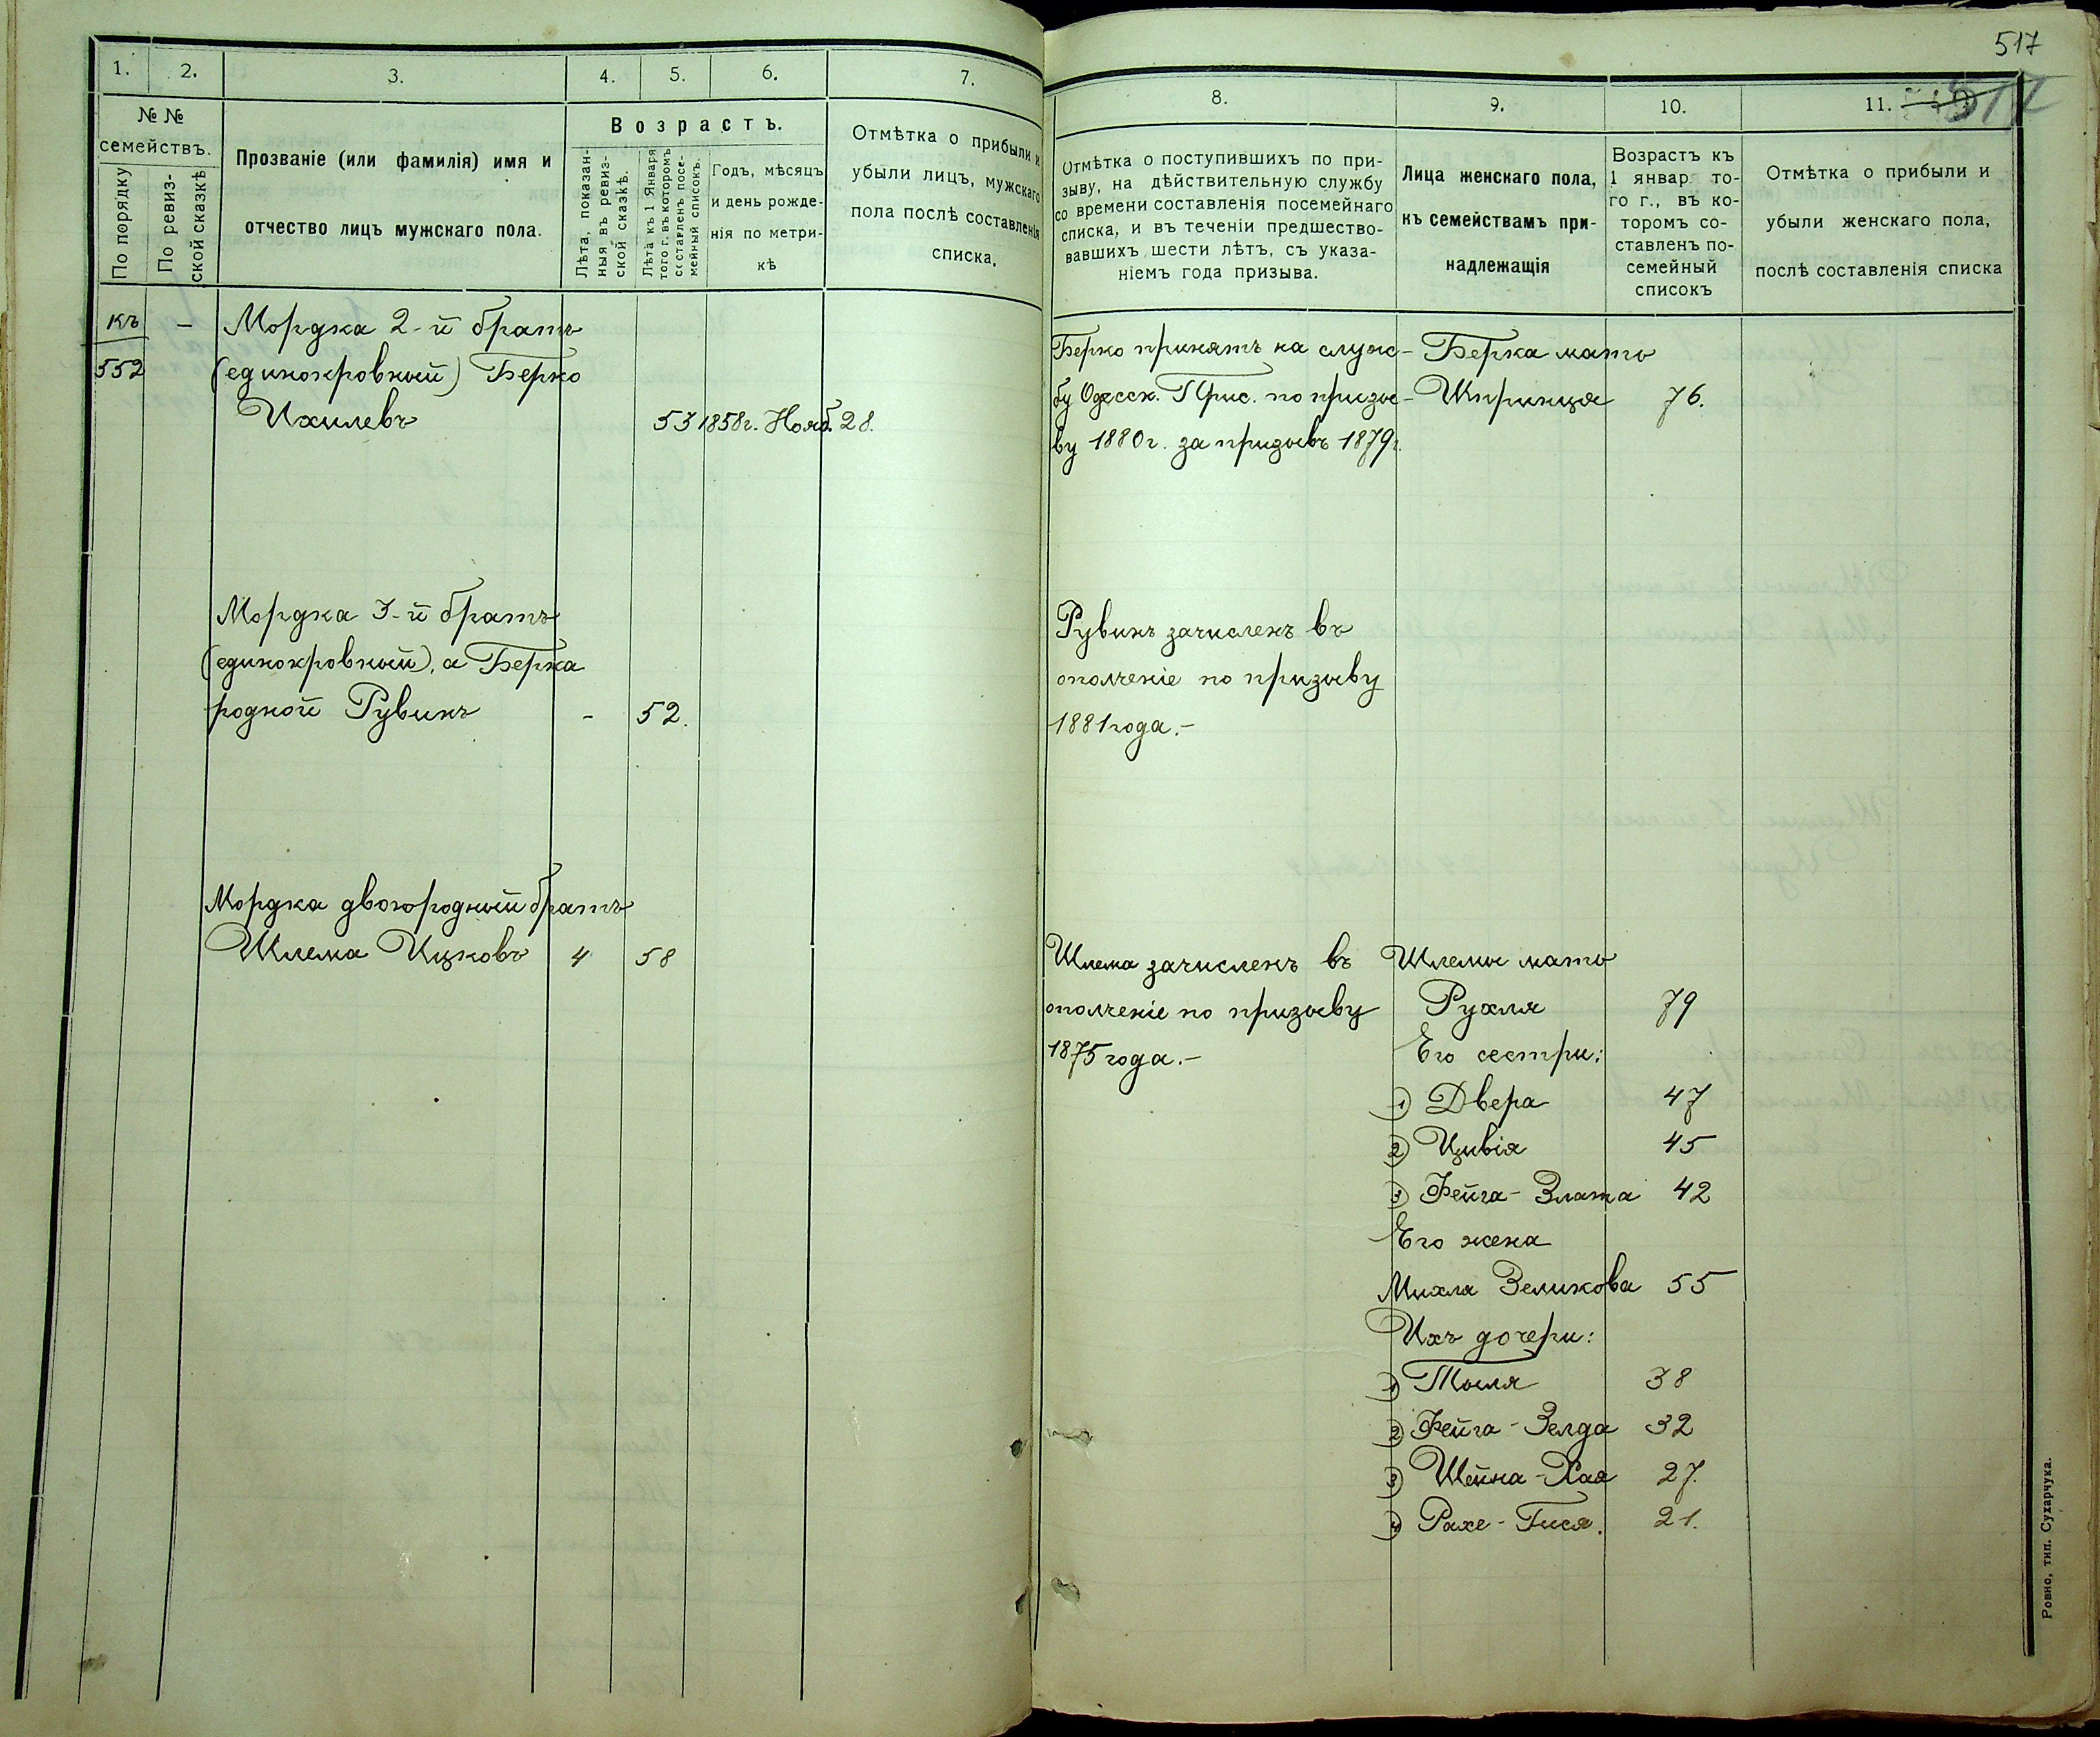 1.
2.
3.
4.
5.
6.
7.
№ №
семействъ.
По порядку
По ревиз-
ской сказкѣ
Прозваніе (или фамилія) имя и
отчество лицъ мужскаго пола.
Возрастъ.
Лѣта, показан-
ныя въ ревиз-
ской сказкѣ.
Лѣта къ 1 Января
того г. въ которомъ
составленъ посе-
мейный списокъ.
Годъ, мѣсяцъ
и день рожде-
нія по метри-
кѣ
Отмѣтка о прибыли и
убыли лицъ, мужскаго
пола послѣ составленія
списка.
къ
552
— Мордка 2-й братъ
(единокровный) Берко
Ихилевъ 53 1858г. Нояб. 28.
Мордка 3-й братъ
(единокровный), а Берка
родной Рувинъ - 52.
Мордка двоюродный братъ
Шлема Ицковъ 4 58
517
517
8.
9.
10.
11.
Отмѣтка о поступившихъ по при-
зыву, на дѣйствительную службу
со времени составленія посемейнаго
списка, и въ теченіи предшество-
вавшихъ шести лѣтъ, съ указа-
ніемъ года призыва.
Лица женскаго пола,
къ семействамъ при-
надлежащія
Возрастъ къ
1 январ. то-
го г., въ ко-
торомъ со-
ставленъ по-
семейный
списокъ
Отмѣтка о прибыли и
убыли женскаго пола,
послѣ составленія списка
Берко принятъ на служ-
бу Одесск. Прис. по призы-
ву 1880г. за призывъ 1879г.
Берка мать
Ширинця 76.
Рувинъ зачисленъ въ
ополченіе по призыву
1881 года.-
Шлема зачисленъ въ
ополченіе по призыву
1875 года.-
Шлемы мать
Рухля 79
Его сестри:
1) Двера 47
2) Цивія 45
3) Фейга-Злата 42
Его жена
Михля Зеликова 55
Ихъ дочери:
1) Тойля 38
2) Фейга-Зелда 32
3) Шейна-Хая 27.
4) Рахе-Гися. 21.
Ровно, тип. Сухарчука.